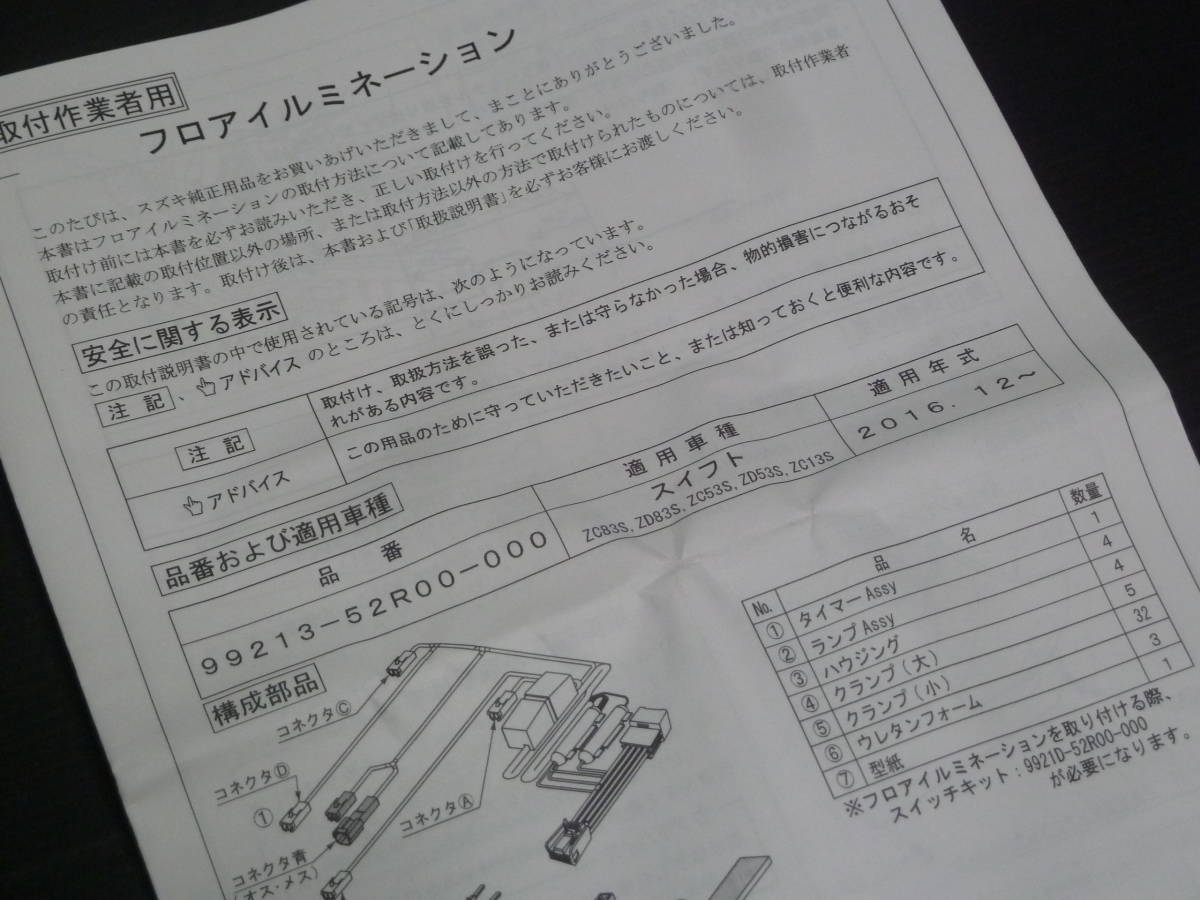 取付作業者用
フロアイルミネーション
このたびは、スズキ純正用品をお買いあげいただきまして、まことにありがとうございました。
本書はフロアイルミネーションの取付方法について記載してあります。
取付け前には本書を必ずお読みいただき、正しい取付けを行ってください。
本書に記載の取付位置以外の場所、または取付方法以外の方法で取付けられたものについては、取付作業者
の責任となります。取付け後は、本書および「取扱説明書」を必ずお客様にお渡しください。
安全に関する表示
この取付説明書の中で使用されている記号は、次のようになっています。
注記、アドバイスのところは、とくにしっかりお読みください。
注記
取付け、取扱方法を誤った、または守らなかった場合、物的損害につながるおそ
れがある内容です。
アドバイス
この用品のために守っていただきたいこと、または知っておくと便利な内容です。
品番および適用車種
品番 適用車種 適用年式
99213-52R00-000
スイフト
ZC83S, ZD83S, ZC53S, ZD53S, ZC13S
2016.12～
構成部品
コネクタⒸ
コネクタⒹ
①
コネクタⒶ
コネクタ青
(オス・メス)
No. 品名 数量
① タイマーAssy 1
② ランプAssy 4
③ ハウジング 4
④ クランプ(大) 5
⑤ クランプ(小) 32
⑥ ウレタンフォーム 3
⑦ 型紙 1
※フロアイルミネーションを取り付ける際、
スイッチキット：9921D-52R00-000
が必要になります。